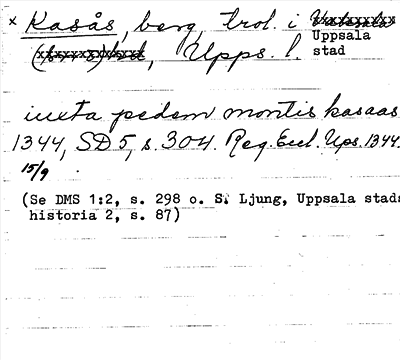 x Kasås, berg, trol. i
Uppsala
stad
, Upps. l.
iuxta pedem montis kasaas
1344, SD 5, s. 304. Reg. Eccl. Ups. 1344.
15/9
(Se DMS 1:2, s. 298 o. S. Ljung, Uppsala stads
historia 2, s. 87)